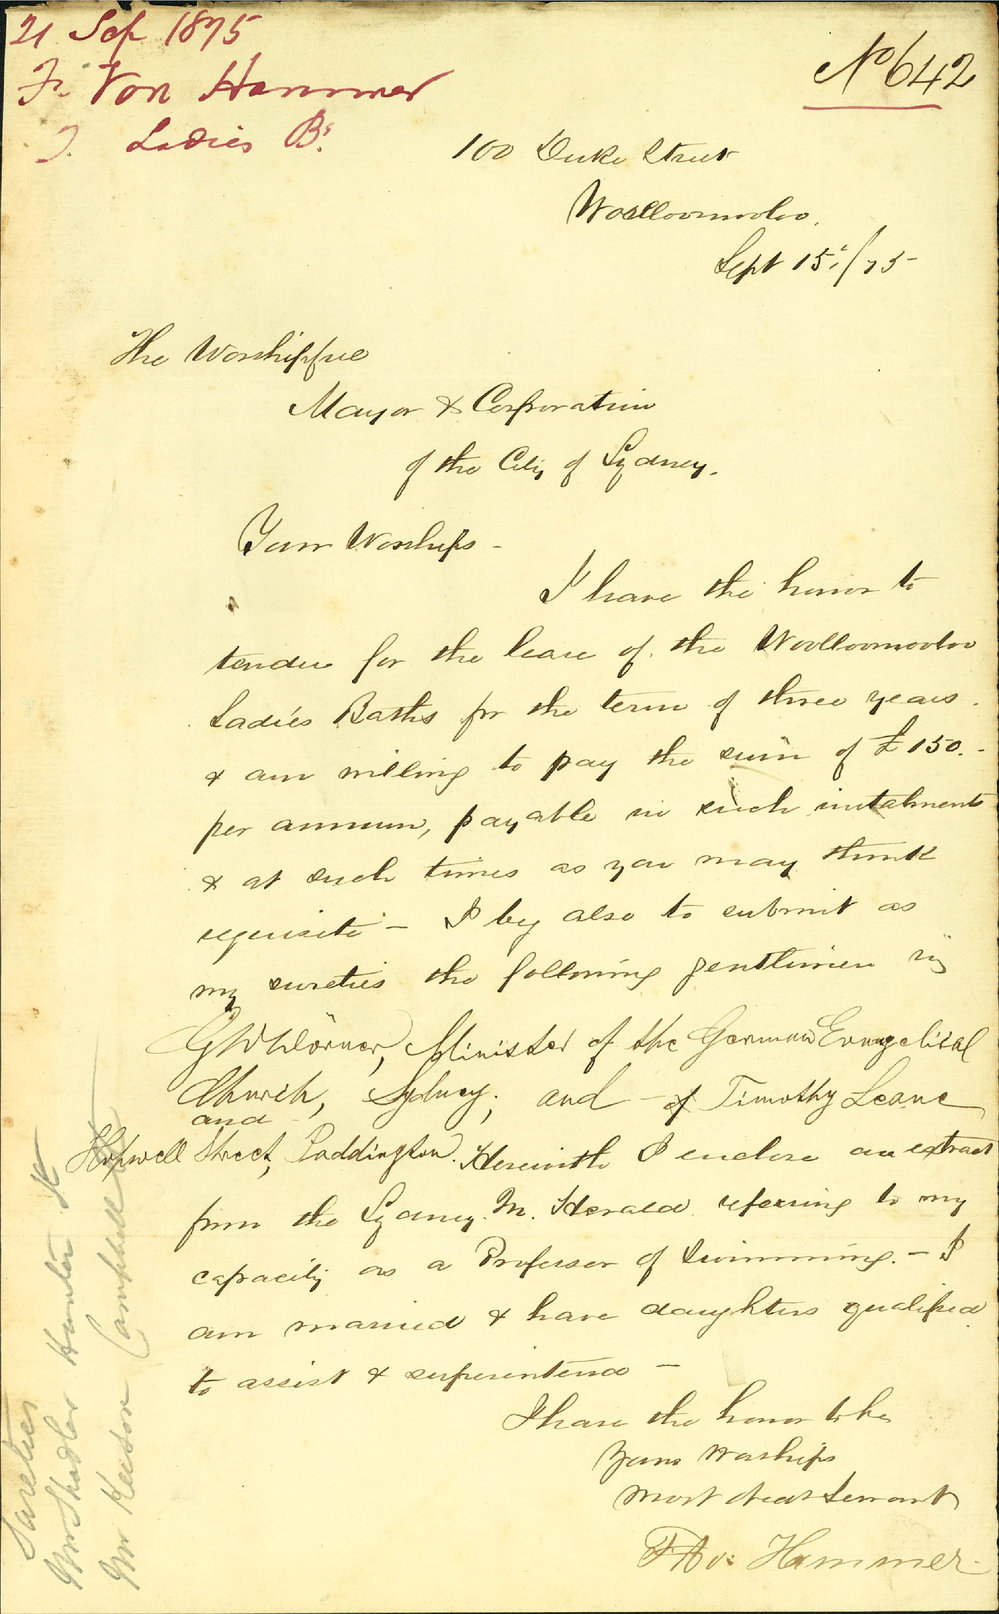 21 Sep 1875
Fr Von Hammer
T. Ladies Bs.
No 642
100 Duke Street
Woolloomooloo.
Sept 15th/75
The Worshipful
Mayor & Corporation
of the City of Sydney.
Your Worships -
I have the honor to
tender for the lease of the Woolloomooloo
Ladies Baths for the term of three years.
& am willing to pay the sum of £150.-
per annum, payable in such instalments
& at such times as you may think
requisite - I beg also to submit as
my sureties the following gentlemen viz
Dörner, Minister of the German Evangelical
Church, Sydney; and of Timothy Leane
and
Hopwell Street, Paddington. Herewith I enclose an extract
from the Sydney M. Herald referring to my
capacity as a Professor of Swimming. - I
am married & have daughters qualified
to assist & superintend -
I have the honor to be
Yours Worships
most obedt Servant
Hammer
Sureties
Mr Shadler Hunter St
Mr Campbell St